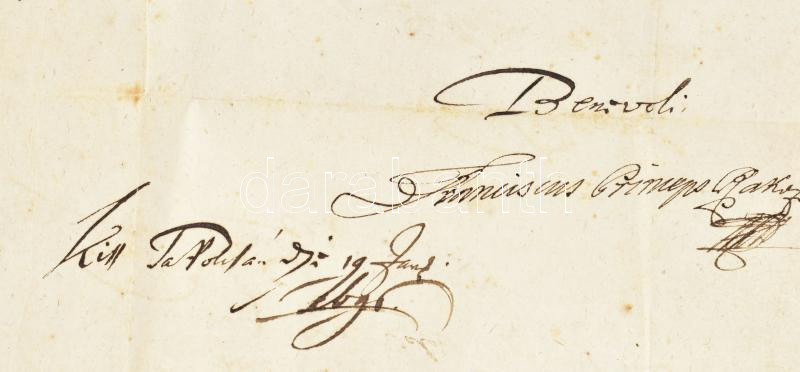 Benevoli
Franciscus Princeps Rako
Kiss Tapolcsán die 19 Jan
darabanth